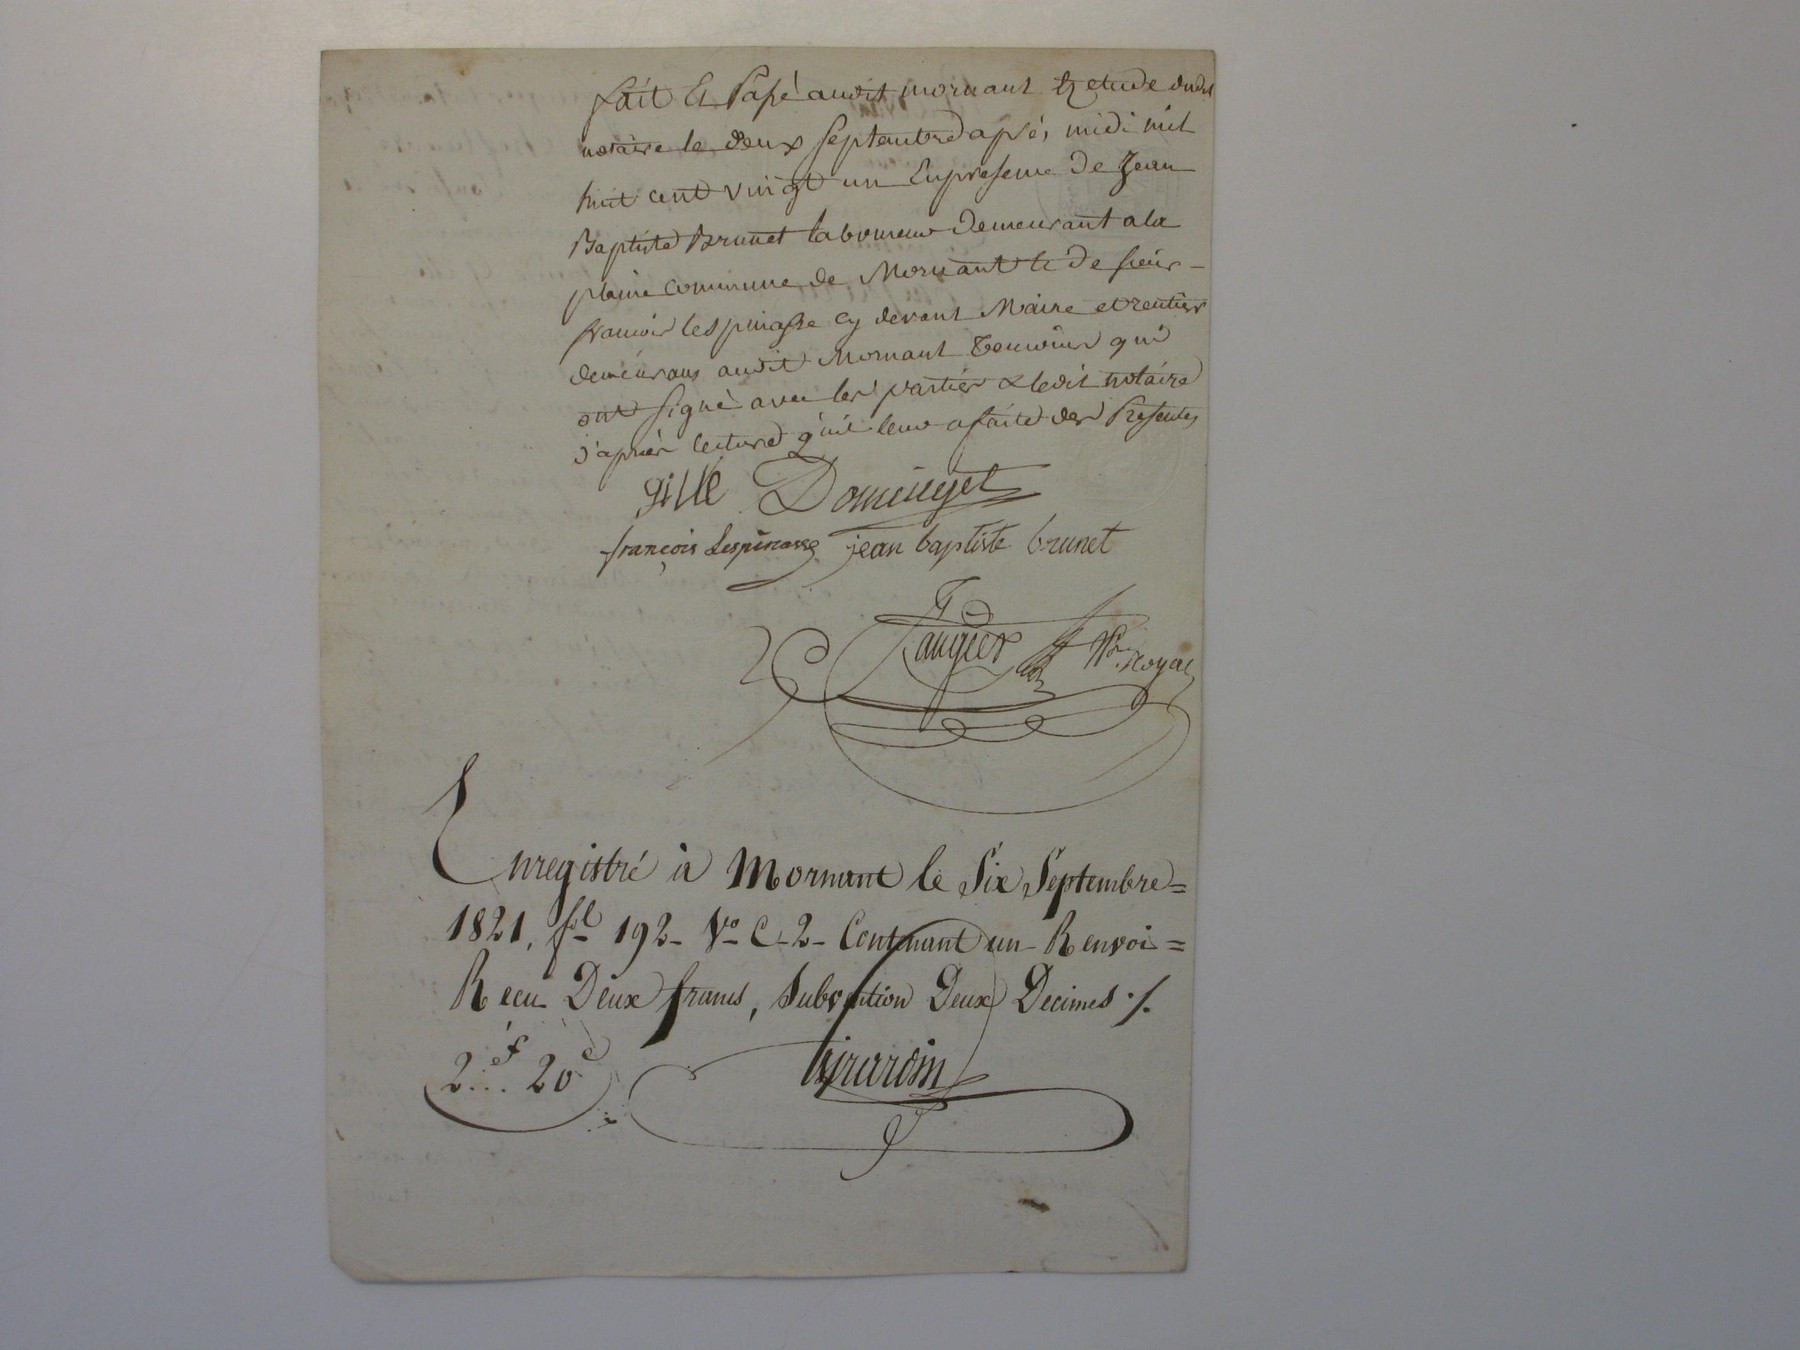 fait Et Passé audit mornant Et etude dudit
notaire le deux septembre après midi mil
huit cent vingt un En presence de Jean
Baptiste Brunet laboureur demeurant a la
plaine commune de Mornant & de sieur
francois lespinasse cy devant Maire et rentier
demeurans audit Mornant temoins qui
ont signé avec les parties & ledit notaire
d'après lecture qu'il leur a faite des Presentes
gille Dominget
françois Lespinasse jean baptiste brunet
Laugier Nre royal
Enregistré à Mornant le Six Septembre =
1821, fol 192 - Vo C - 2 - Contenant un Renvoi =
Recu Deux francs, Subvention Deux Decimes ./.
2f.. 20c
Girardin